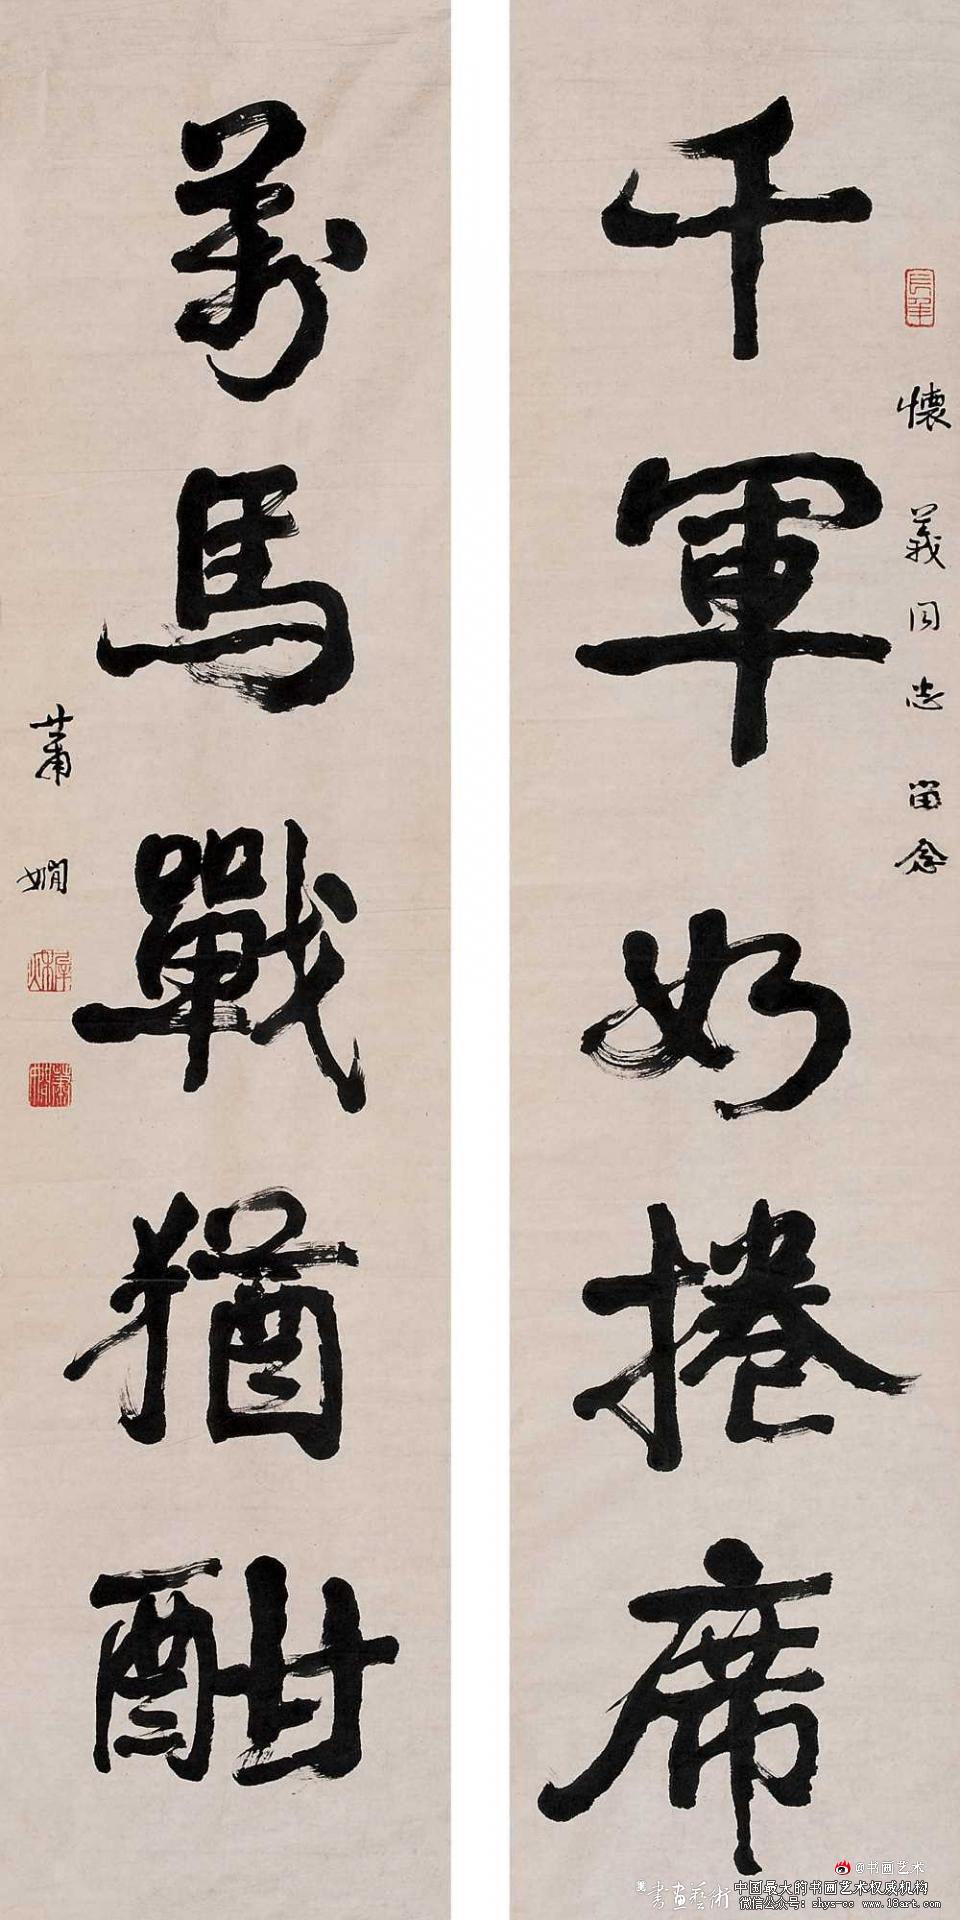 千軍如捲席
懷義同志留念
萬馬戰猶酣
蕭嫻
長年
蕭嫻
@书画艺术
書画藝術
中国最大的书画艺术权威机构
微信公众号: shys-cc www.18art.com